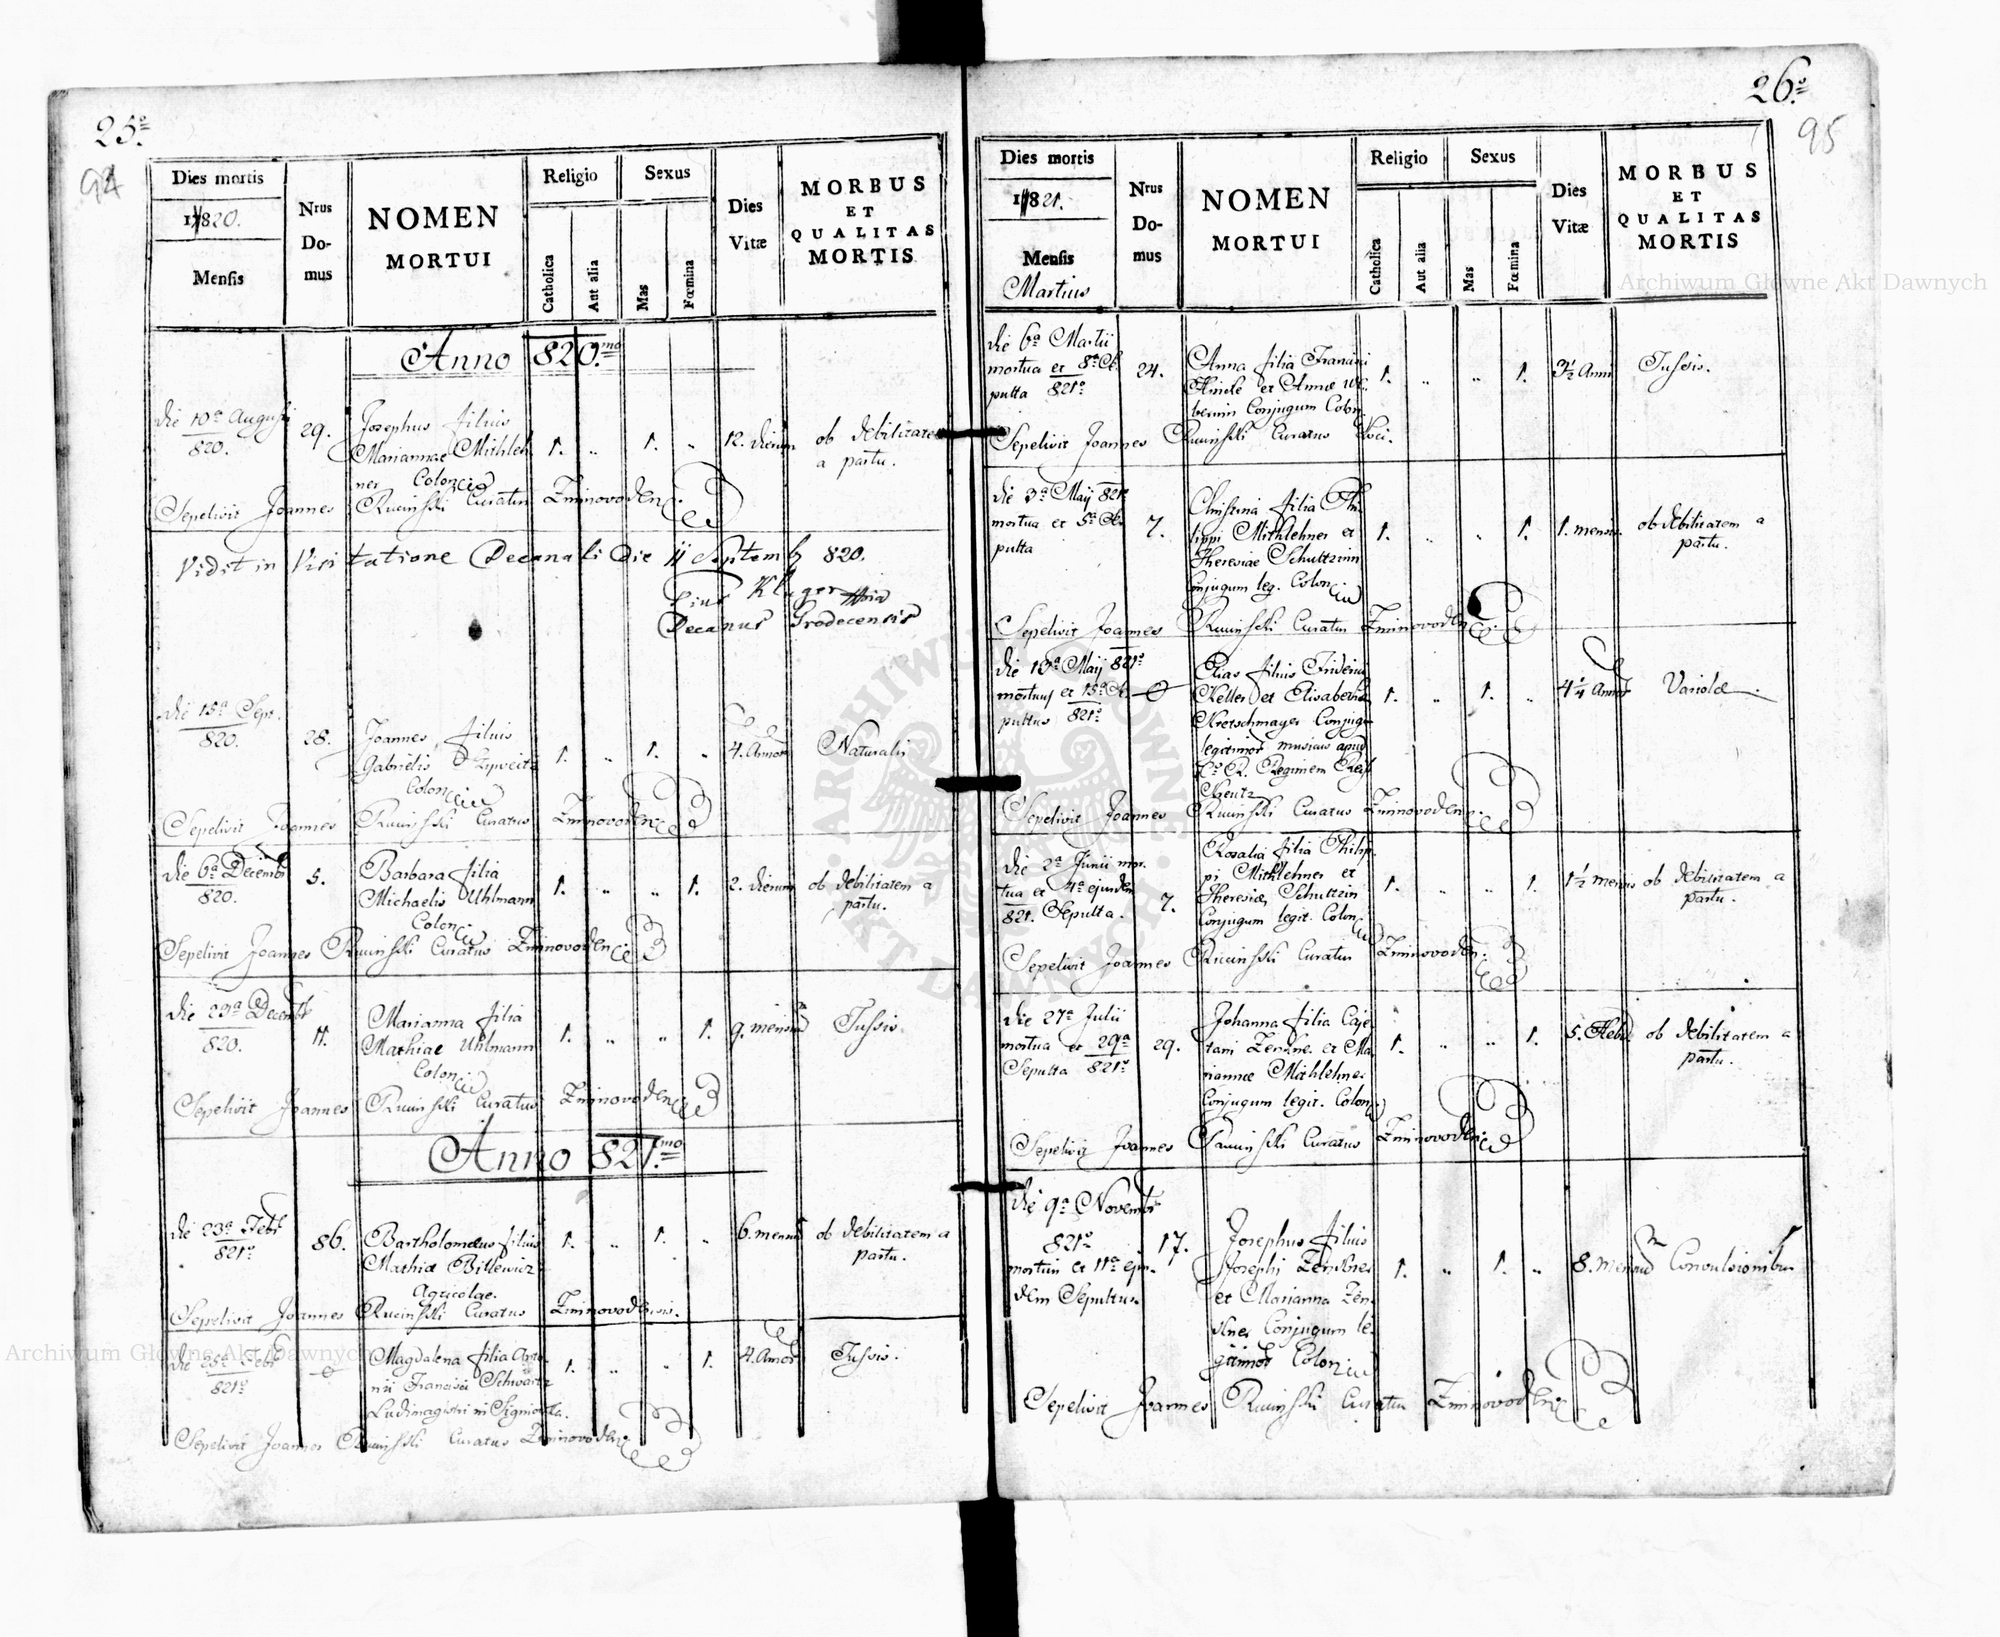 25º
94
Dies mortis
1820.
Mensis
Nrus
Do-
mus
NOMEN
MORTUI
Religio
Catholica
Aut alia
Sexus
Mas
Fœmina
Dies
Vitæ
MORBUS
ET
QUALITAS
MORTIS
Anno 820.mo
die 10ª Augusti
820.
29.
Josephus filius
Mariannae Mithleh
ner Colon
1. „ 1. „
12. dierum
ob debilitatem
a partu.
Sepelivit Joannes Ruciński Curatus Zimnovoden
Vidit in Visitatione Decanali die 11 Septemb 820.
Pius Kluger
Decanus Grodecensis
die 15ª Sept.
820.
28.
Joannes filius
Gabrielis
Colon
1. „ 1. „
4. Annor
Naturalis
Sepelivit Joannes Ruciński Curatus Zimnovoden
die 6ª Decemb
820.
5.
Barbara filia
Michaelis Uhlmann
Colon
1. „ „ 1.
2. dierum
ob debilitatem a
partu.
Sepelivit Joannes Ruciński Curatus Zimnovoden
die 23ª Decemb
820.
11.
Marianna filia
Mathiae Uhlmann
Colon
1. „ „ 1.
9. mensium
Tussis.
Sepelivit Joannes Ruciński Curatus Zimnovoden
Anno 821.mo
die 23ª Feb
821º
86.
Bartholomæus filius
Mathiæ Bitlewicz
Agricolae.
1. „ 1. „
6. mensium
ob debilitatem a
partu.
Sepelivit Joannes Ruciński Curatus Zimnovodensis.
die 25ª Feb
821º
Magdalena filia Anto
nii Francisci Schwartz
Ludimagistri in
1. „ „ 1.
4. Annor
Tussis.
Sepelivit Joannes Ruciński Curatus Zimnovoden
26º
95
Dies mortis
1821.
Mensis
Martius
Nrus
Do-
mus
NOMEN
MORTUI
Religio
Catholica
Aut alia
Sexus
Mas
Fœmina
Dies
Vitæ
MORBUS
ET
QUALITAS
MORTIS
die 6ª Martii
mortua et 8ª Se
pulta 821º
24.
Anna filia Francisci
Hinkle et Annæ
Conjugum Colon.
1. „ „ 1.
3½ Anni
Tussis.
Sepelivit Joannes Ruciński Curatus Loci.
die 3ª Maij 821º
mortua et 5ª Se
pulta
7.
Christina filia Phi
lippi Mithlehner et
Theresiae Schultzin
Conjugum leg. Colon
1. „ „ 1.
1. mensis
ob debilitatem a
partu.
Sepelivit Joannes Ruciński Curatus Zimnovoden
die 13ª Maij 821º
mortuus et 15ª Se
pultus 821º
Elias filius Friderici
Keller et Elisabetha
Kretschmayer Conjugum
legitimor musicus apud
C. R. Regimen
1. „ 1. „
4¼ Annor
Variolæ.
Sepelivit Joannes Ruciński Curatus Zimnovoden
die 2ª Junii mor.
tua et 4ª ejusdem
821. Sepulta.
7.
Rosalia filia Philip
pi Mithlehner et
Theresiæ Schultzin
Conjugum legit. Colon
1. „ „ 1.
1½ mensis
ob debilitatem a
partu.
Sepelivit Joannes Ruciński Curatus Zimnovoden.
die 27ª Julii
mortua et 29ª
Sepulta 821º
29.
Johanna filia Caje
tani Zenkner et Ma
riannæ Mithlehner
Conjugum legit. Colon
1. „ „ 1.
5. Hebd
ob debilitatem a
partu.
Sepelivit Joannes Ruciński Curatus Zimnovoden
die 9ª Novemb
821º
mortuus et 11ª ejus.
dem Sepultus.
17.
Josephus filius
Josephi Zenkner
et Marianna Zen
kner Conjugum le
gitimor Colon
1. „ 1. „
8. mensium
Convulsionibus
Sepelivit Joannes Ruciński Curatus Zimnovoden
Archiwum Główne Akt Dawnych
Archiwum Główne Akt Dawnych
ARCHIWUM GŁÓWNE
AKT DAWNYCH